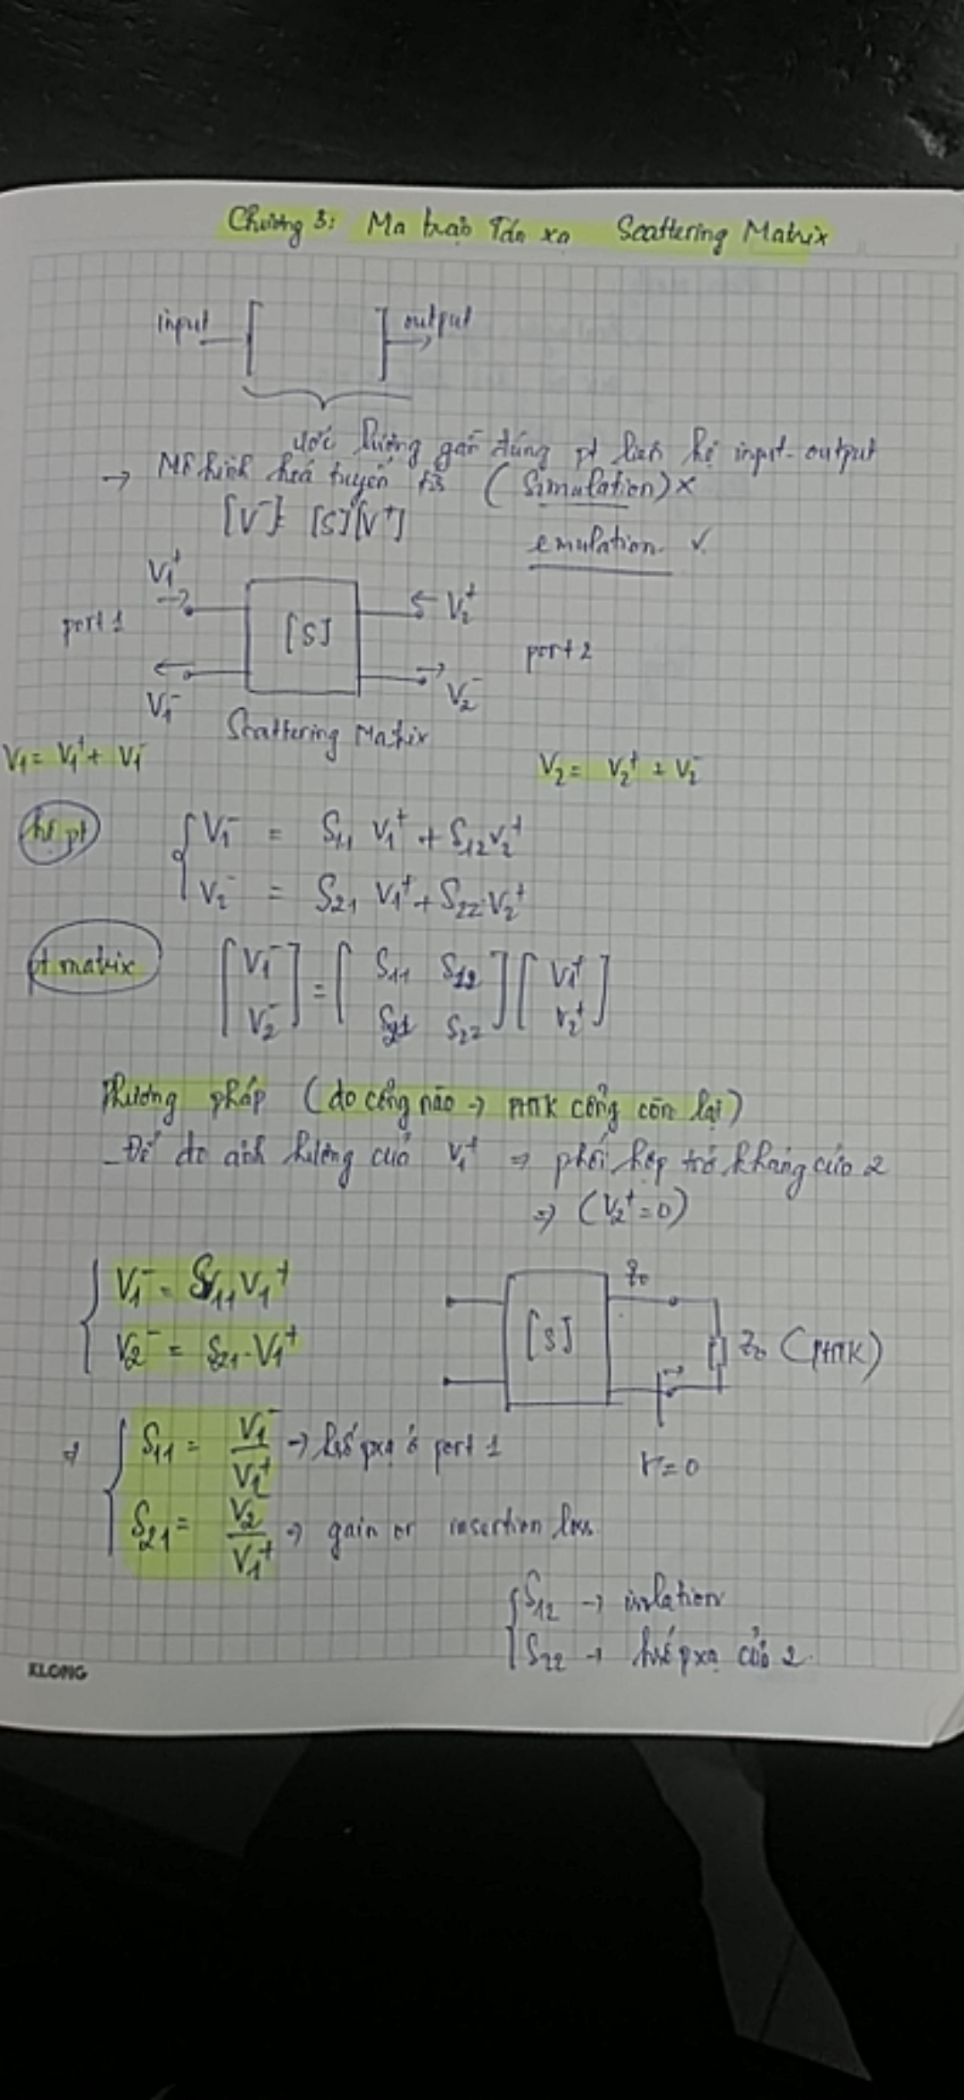 Chương 3: Ma trận Tán xạ Scattering Matrix
input output
ước lượng gần đúng pt liên hệ input-output
→ Mô hình hoá tuyến (Simulation) ×
[V⁻] = [S][V⁺]
emulation ✓
V₁⁺
port 1 [S] ← V₂⁺
port 2
V₁⁻ V₂⁻
Scattering Matrix
V₁ = V₁⁺ + V₁⁻ V₂ = V₂⁺ + V₂⁻
hệ pt V₁⁻ = S₁₁ V₁⁺ + S₁₂ V₂⁺
V₂⁻ = S₂₁ V₁⁺ + S₂₂ V₂⁺
pt matrix [V₁⁻ V₂⁻] = [S₁₁ S₁₂ S₂₁ S₂₂] [V₁⁺ V₂⁺]
Phương pháp (đo cổng nào → PHTK cổng còn lại)
- Để đo ảnh hưởng của V₁⁺ ⇒ phối hợp trở kháng cửa 2
⇒ (V₂⁺ = 0)
V₁⁻ = S₁₁ V₁⁺
V₂⁻ = S₂₁ . V₁⁺
Z₀
[S] Z₀ (PHTK)
⇒ S₁₁ = V₁⁻ / V₁⁺ → hsố pxạ ở port 1
r = 0
S₂₁ = V₂⁻ / V₁⁺ → gain or insertion loss
S₁₂ → isolation
S₂₂ → hsố pxạ cửa 2.
KLONG